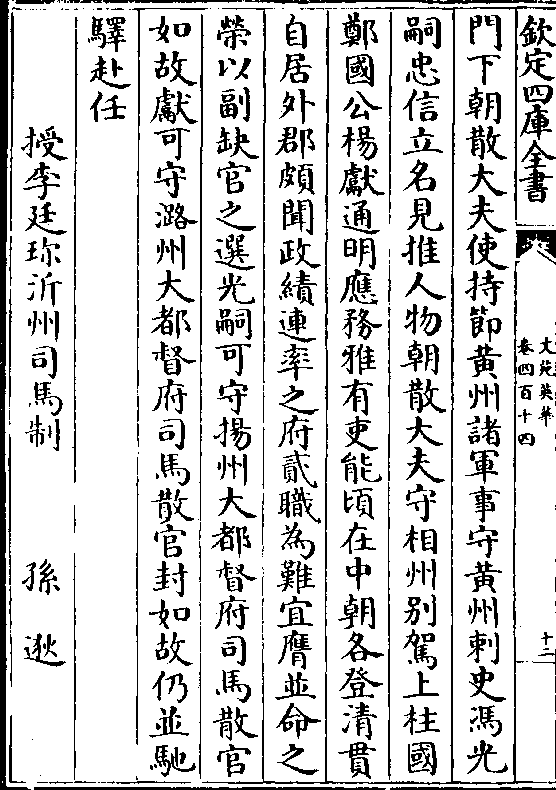 欽定四庫全書
文苑英華
卷四百十四
十二
門下朝散大夫使持節黄州諸軍事守黄州刺史馮光
嗣忠信立名見推人物朝散大夫守相州别駕上柱國
鄭國公楊獻通明應務雅有吏能頃在中朝各登清貫
自居外郡頗聞政績連率之府貳職為難宜膺並命之
榮以副缺官之選光嗣可守揚州大都督府司馬散官
如故獻可守潞州大都督府司馬散官封如故仍並馳
驛赴任
授李廷珎沂州司馬制 孫逖